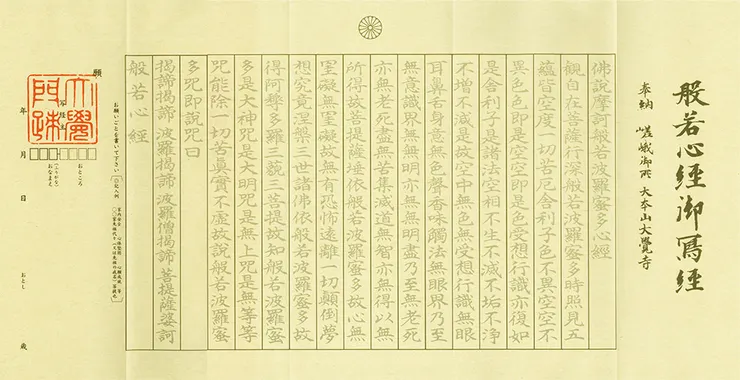 般若心經御寫經
奉納 嵯峨御所 大本山大覺寺
佛說摩訶般若波羅蜜多心經
觀自在菩薩行深般若波羅蜜多時照見五
蘊皆空度一切苦厄舍利子色不異空空不
異色色即是空空即是色受想行識亦復如
是舍利子是諸法空相不生不滅不垢不淨
不增不減是故空中無色無受想行識無眼
耳鼻舌身意無色聲香味觸法無眼界乃至
無意識界無無明亦無無明盡乃至無老死
亦無老死盡無苦集滅道無智亦無得以無
所得故菩提薩埵依般若波羅蜜多故心無
罣礙無罣礙故無有恐怖遠離一切顛倒夢
想究竟涅槃三世諸佛依般若波羅蜜多故
得阿耨多羅三藐三菩提故知般若波羅蜜
多是大神咒是大明咒是無上咒是無等等
咒能除一切苦真實不虛故說般若波羅蜜
多咒即說咒曰
揭諦揭諦 波羅揭諦 波羅僧揭諦 菩提薩婆訶
般若心經
お願いごとを書いて下さい
願
おところ
おなまえ
年 月 日 おとし 歳